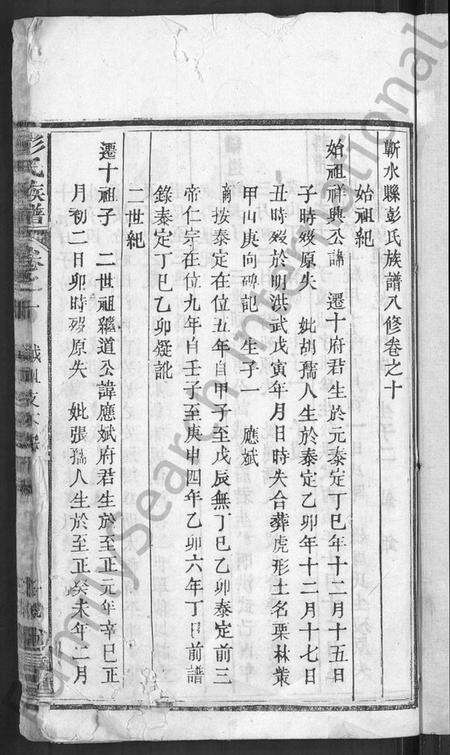 蘄水縣彭氏族譜八修卷之十
始祖紀
始祖祥興公諱 遷十府君生於元泰定丁巳年十二月十五日
子時歿原失 妣胡孺人生於泰定乙卯年十二月十七日
丑時歿於明洪武戊寅年月日時失合葬虎形土名栗林業
甲山庚向碑記 生子一 應斌
按泰定在位五年自甲子至戊辰無丁巳乙卯泰定前三
帝仁宗在位九年自壬子至庚申四年乙卯六年丁巳前譜
錄泰定丁巳乙卯疑訛
二世紀
遷十祖子 二世祖繼道公諱應斌府君生於至正元年辛巳正
月初二日卯時歿原失 妣張孺人生於至正癸未年二月
彭氏族譜
卷之十
FamilySearch International